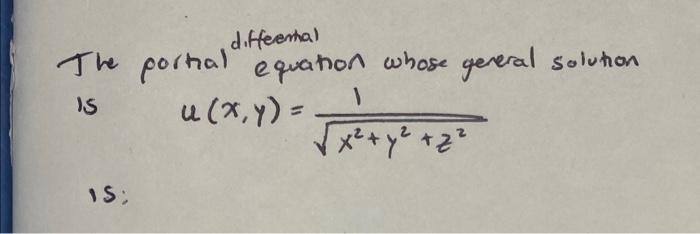 The partial differential equation whose general solution
is u(x,y) = 1/√(x²+y²+z²)
is: